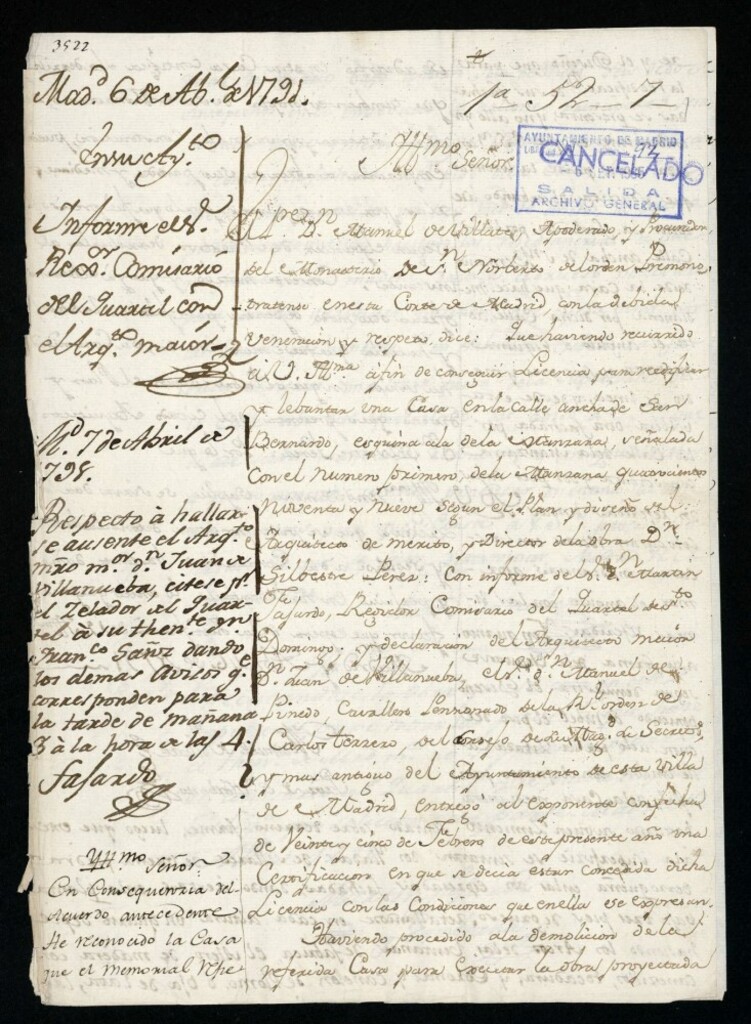 3522
Mad.d 6 de Ab.l de 1791.
1a 52 - 7
En su Ay.to
Informe el S.r
Rex.or Comisario
del Quartel con
el Arq.to maior
M.d 7 de Abril de
798.
Respecto à hallar-
se ausente el Arq.to
mro m.or d.n Juan de
Villanueba, citese p.r
el Zelador del Quar-
tel à su then.te d.n
Fran.co Sanz dando
los demas Avisos q.e
corresponden para
la tarde de mañana
à la hora de las 4.
Fajardo
Yllmo Señor
En Consequencia del
Acuerdo antecedente
He reconocido la Casa
que el Memorial
AYUNTAMIENTO DE MADRID
CANCELADO
SALIDA
ARCHIVO GENERAL
Yllmo Señor.
D.n Manuel de Villate, Apoderado, y Procurador
del Monasterio de S.n Norberto del orden Premons-
tratense en esta Corte de Madrid con la debida
veneracion y respeto, dice: Que haviendo recurrido
à V. Yllma à fin de conseguir Licencia para reedificar
y lebantar una Casa en la Calle ancha de San
Bernardo, esquina a la de la Manzana, señalada
con el numero primero, de la Manzana quatrocientos
Noventa y nueve segun el Plan y diseño del
Arquitecto de merito, y Director de la obra D.n
Silbestre Perez: con informe del S.r D.n Martin
Fajardo, Regidor Comisario del Quartel de S.to
Domingo: y declaracion del Arquitecto maior
D.n Juan de Villanueba, el S.r d.n Manuel de
Pinedo, Cavallero Pensionado de la R.l orden de
Carlos tercero, del Consejo de su Mag.d su Secret.o
y mas antiguo del Ayuntamiento de esta Villa
de Madrid, entregó al exponente con fecha
de Veinte y cinco de Febrero de este presente año una
Certificacion en que se decia estar concedida dicha
Licencia con las Condiciones que en ella se expresan.
Haviendo procedido a la demolicion de la
referida Casa para Executar la obra proyectada